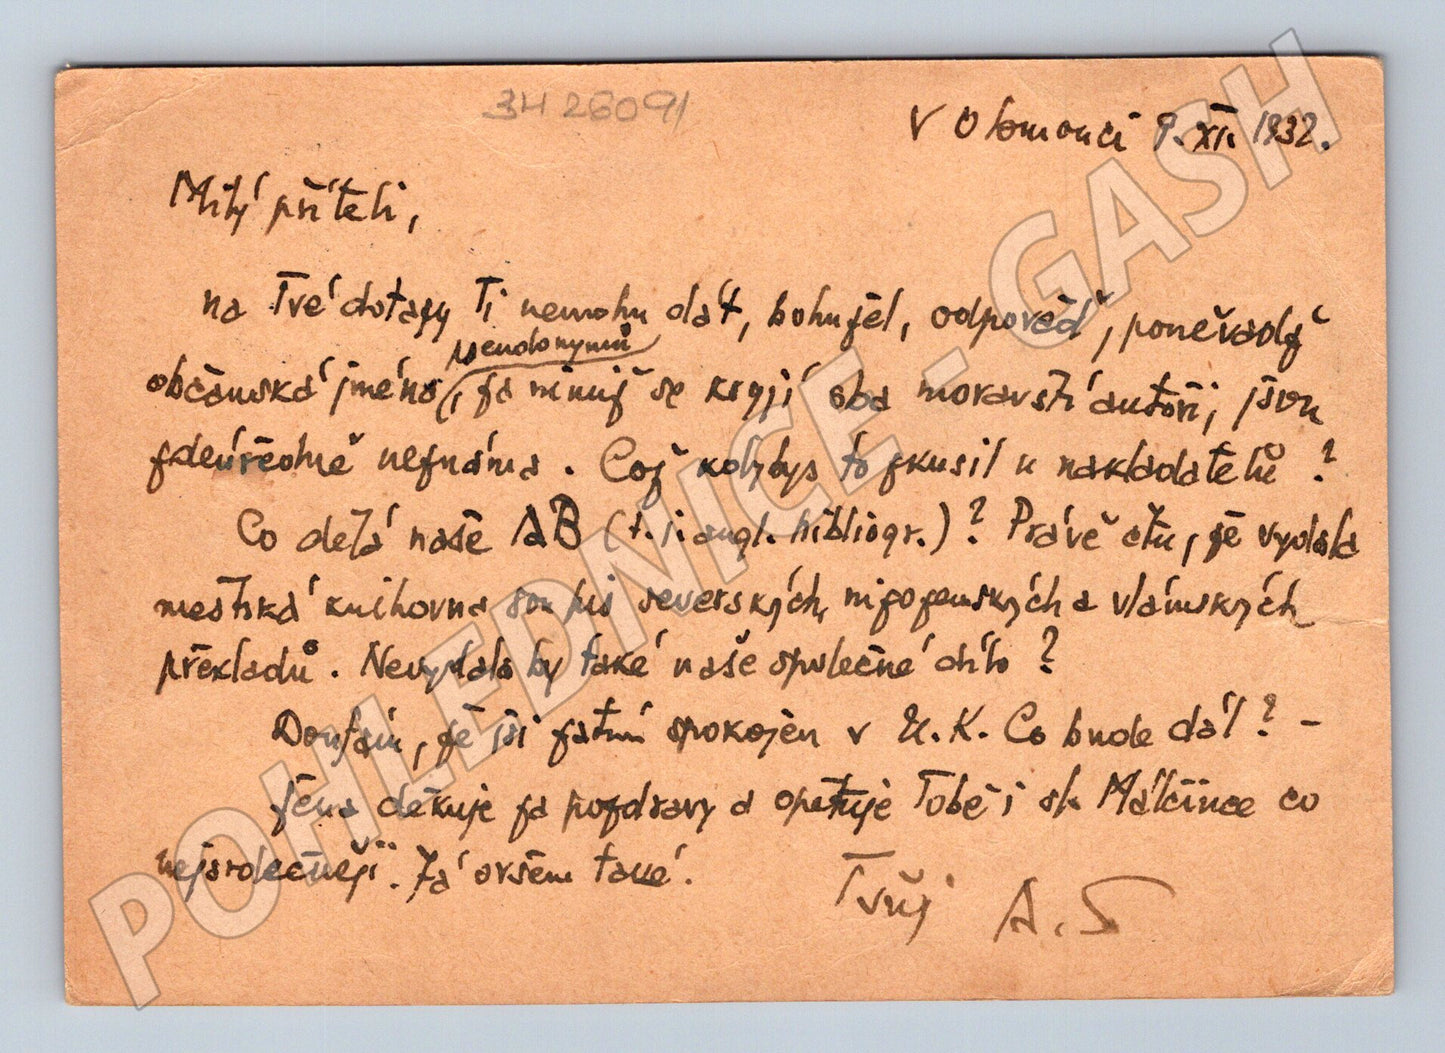 34 26091
V Olomouci 9. XI. 1932.
Milý příteli,
na Tvé dotazy Ti nemohu dát, bohužel, odpověď, poněvadž
pseudonymů
občanská jména, za nimiž se kryjí oba moravští autoři, jsou
zde úředně neznáma. Což kdybys to zkusil u nakladatelů?
Co dělá naše AB (t. j. angl. bibliogr.)? Právě čtu, že vydala
městská knihovna soupis severských, nizozemských a vlámských
překladů. Nevydala by také naše společné dílo?
Doufám, že jsi zatím spokojen v U. K. Co bude dál? –
Žena děkuje za pozdravy a opětuje Tobě i sl. Málčince co
nejsrdečněji. Já ovšem také.
Tvůj A. S
POHLEDNICE - GASH